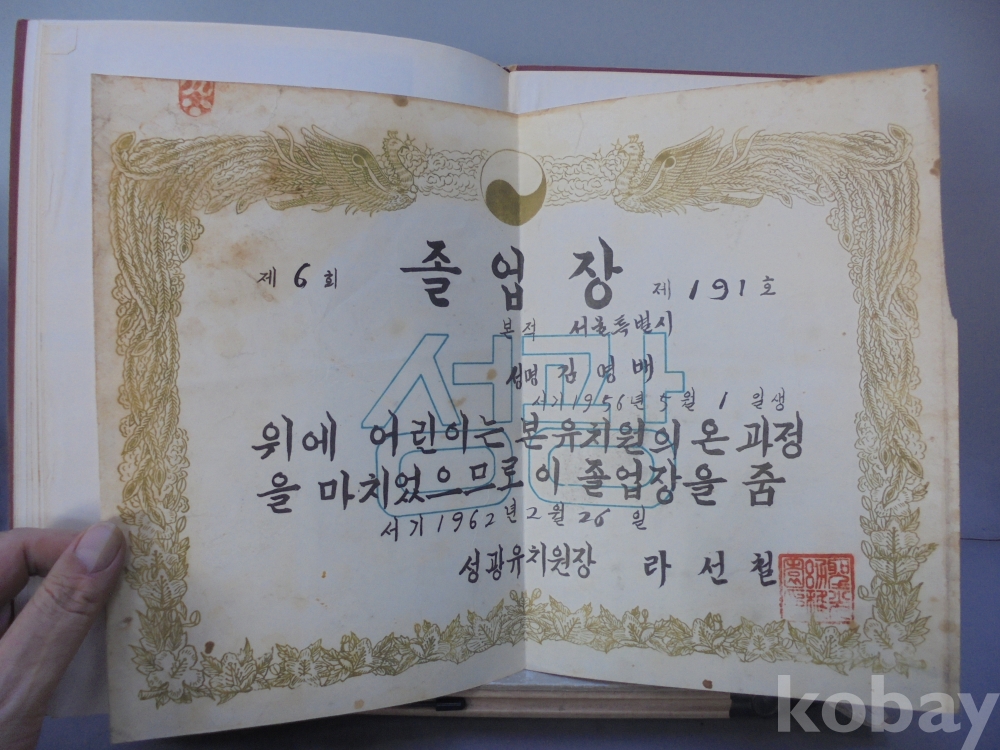 제 6 회 졸업장 제 191 호
본적 서울특별시
성명 김영배
서기 1956년 5월 1일생
위에 어린이는 본유치원의 온 과정
을 마치었으므로 이 졸업장을 줌
서기 1962년 2월 26일
성광유치원장 라선철
성광
kobay